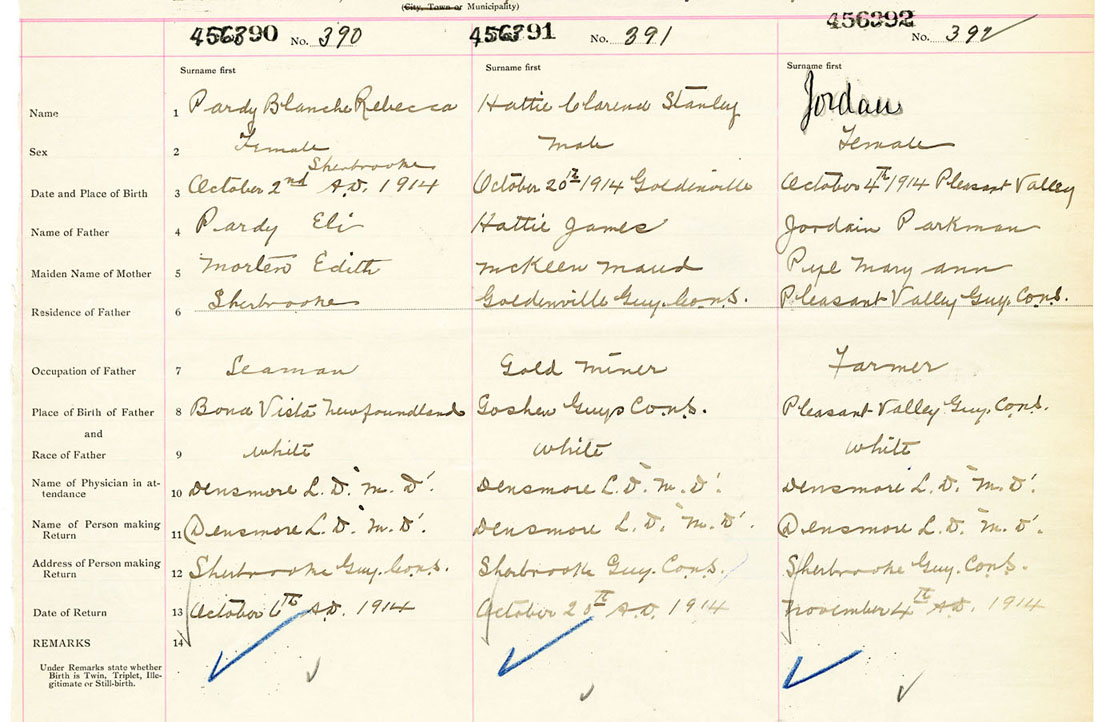 (City, Town or Municipality)
456390 No. 390 456391 No. 391 456392 No. 392
Surname first Surname first Surname first
Name 1 Pardy Blanche Rebecca Hattie Clarence Stanley Jordan
Sex 2 Female Male Female
Sherbrooke
Date and Place of Birth 3 October 2nd A.D. 1914 October 20th 1914 Goldenville October 4th 1914 Pleasant Valley
Name of Father 4 Pardy Eli Hattie James Jordain Parkman
Maiden Name of Mother 5 Morten Edith McKeen Maud Pye Mary Ann
Residence of Father 6 Sherbrooke Goldenville Guy. Co. N.S. Pleasant Valley Guy. Co. N.S.
Occupation of Father 7 Seaman Gold Miner Farmer
Place of Birth of Father 8 Bona Vista Newfoundland Goshen Guys Co. N.S. Pleasant Valley Guy. Co. N.S.
and
Race of Father 9 White White White
Name of Physician in at-
tendance 10 Densmore L. D. M. D. Densmore L. D. M. D. Densmore L. D. M. D.
Name of Person making
Return 11 Densmore L. D. M. D. Densmore L. D. M. D. Densmore L. D. M. D.
Address of Person making
Return 12 Sherbrooke Guy. Co. N.S. Sherbrooke Guy. Co. N.S. Sherbrooke Guy. Co. N.S.
Date of Return 13 October 6th A.D. 1914 October 20th A.D. 1914 November 4th A.D. 1914
REMARKS 14
Under Remarks state whether
Birth is Twin, Triplet, Ille-
gitimate or Still-birth.